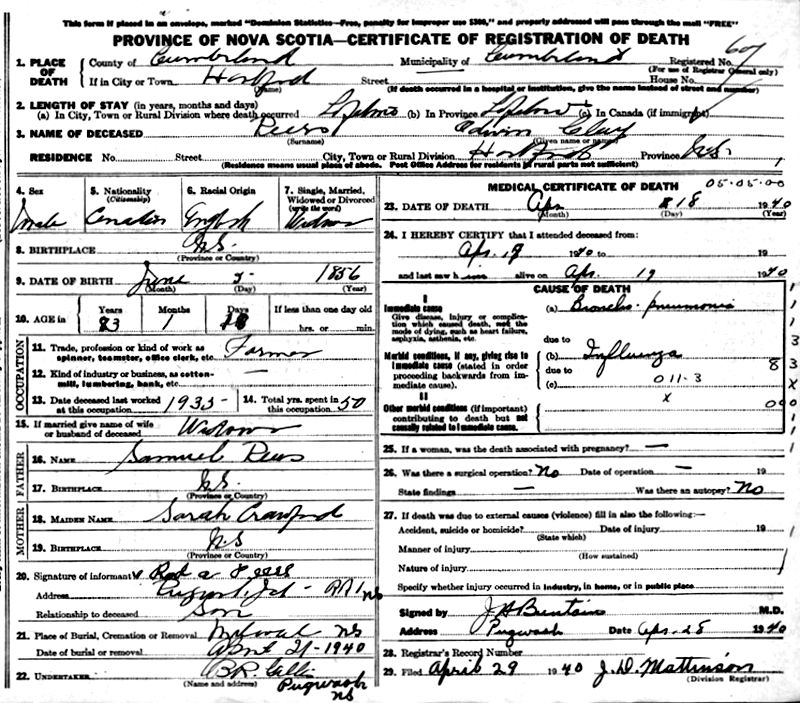 This form if placed in an envelope, marked "Dominion Statistics—Free, penalty for improper use $300," and properly addressed will pass through the mail "FREE"
PROVINCE OF NOVA SCOTIA—CERTIFICATE OF REGISTRATION OF DEATH
1. PLACE OF DEATH County of Cumberland Municipality of Cumberland Registered No. 607
(For use of Registrar General only)
If in City or Town Hartford Street House No.
(Name) (If death occurred in a hospital or institution, give its name instead of street and number)
2. LENGTH OF STAY (in years, months and days)
(a) In City, Town or Rural Division where death occurred Lifetime (b) In Province Lifetime (c) In Canada (if immigrant)
3. NAME OF DECEASED Edwin Clay
(Surname) (Given name or names)
RESIDENCE No. Street City, Town or Rural Division Hartford Province N.S.
(Residence means usual place of abode. Post Office Address for residents in rural parts not sufficient)
4. Sex 5. Nationality (Citizenship) 6. Racial Origin 7. Single, Married, Widowed or Divorced (write the word)
male Canadian English Widower
8. BIRTHPLACE N.S.
(Province or Country)
9. DATE OF BIRTH June 1856
(Month) (Day) (Year)
10. AGE in Years Months Days If less than one day old
83 1 hrs. or min.
OCCUPATION
11. Trade, profession or kind of work as spinner, teamster, office clerk, etc. Farmer
12. Kind of industry or business, as cotton-mill, lumbering, bank, etc. —
13. Date deceased last worked at this occupation 1935 14. Total yrs. spent in this occupation 50
15. If married give name of wife or husband of deceased Widower
FATHER
16. NAME Samuel
17. BIRTHPLACE N.S.
(Province or Country)
MOTHER
18. MAIDEN NAME Sarah Crawford
19. BIRTHPLACE N.S
(Province or Country)
20. Signature of informant
Address Pugwash RR1 NS
Relationship to deceased Son
21. Place of Burial, Cremation or Removal NS
Date of burial or removal April 21-1940
22. UNDERTAKER
(Name and address) Pugwash NS
MEDICAL CERTIFICATE OF DEATH 05-05-00
23. DATE OF DEATH Apr 18 1940
(Month) (Day) (Year)
24. I HEREBY CERTIFY that I attended deceased from:
Apr. 1940 to 19
and last saw h alive on Apr. 19 1940
CAUSE OF DEATH
I
Immediate cause (a) Broncho-pneumonia
Give disease, injury or complication which caused death, not the mode of dying, such as heart failure, asphyxia, asthenia, etc.
due to
Morbid conditions, if any, giving rise to immediate cause (stated in order proceeding backwards from immediate cause).
(b) Influenza
due to
(c) 011-3
x
II
Other morbid conditions (if important) contributing to death but not causally related to immediate cause.
25. If a woman, was the death associated with pregnancy? —
26. Was there a surgical operation? No Date of operation — 19
State findings — Was there an autopsy? No
27. If death was due to external causes (violence) fill in also the following:—
Accident, suicide or homicide? Date of injury 19
(State which)
Manner of injury
(How sustained)
Nature of injury
Specify whether injury occurred in industry, in home, or in public place
Signed by M.D.
Address Pugwash Date Apr. 28 1940
28. Registrar's Record Number
29. Filed April 29 1940 J. D. Mattinson
(Division Registrar)